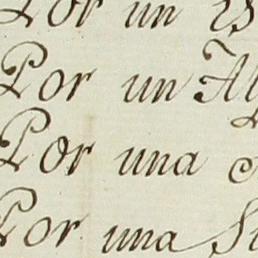 Por un
Por un
Por una
Por una